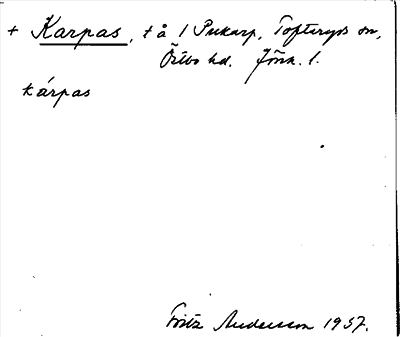 + Karpas, t å 1 Pukarp, Tofteryds sn,
Östbo hd. Jönk. l.
kárpas
Fritz Andersson 1957.